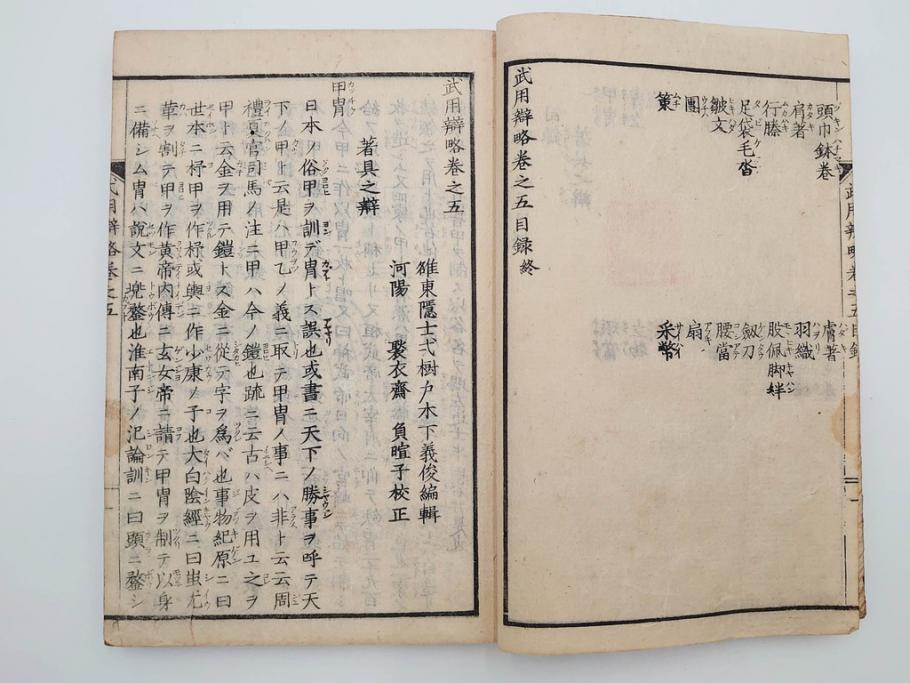 頭巾鉢巻
肩著
行縢
足袋毛沓
皺文
團
策
膚著
羽織
股佩脚絆
劔刀
腰當
扇
采幣
武用辯略巻之五目録終
武用辯略巻之五
雒東隱士弌樹戸木下義俊編輯
河陽 褧衣齋 負暄子校正
著具之辯
甲冑
日本ノ俗甲ヲ訓デ冑トス誤也或書ニ天下ノ勝事ヲ呼テ天
下ノ甲ト云是ハ甲乙ノ義ニ取テ甲冑ノ事ニハ非ト云云周
禮夏官司馬ノ注ニ甲ハ今ノ鎧也疏ニ云古ハ皮ヲ用ユ之ヲ
甲ト云金ヲ用テ鎧トス金ニ從テ字ヲ爲ベ也事物紀原ニ曰
世本ニ杼甲ヲ作杼或輿ニ作少康ノ子也大白陰經ニ曰蚩尤
革ヲ割テ甲ヲ作黄帝内傳ニ玄女帝ニ請テ甲冑ヲ制テ以身
ニ備シム冑ハ説文ニ兠鍪也淮南子ノ氾論訓ニ曰頭ニ鍪シ
武用辯略巻之五
武用辯略巻之五目録